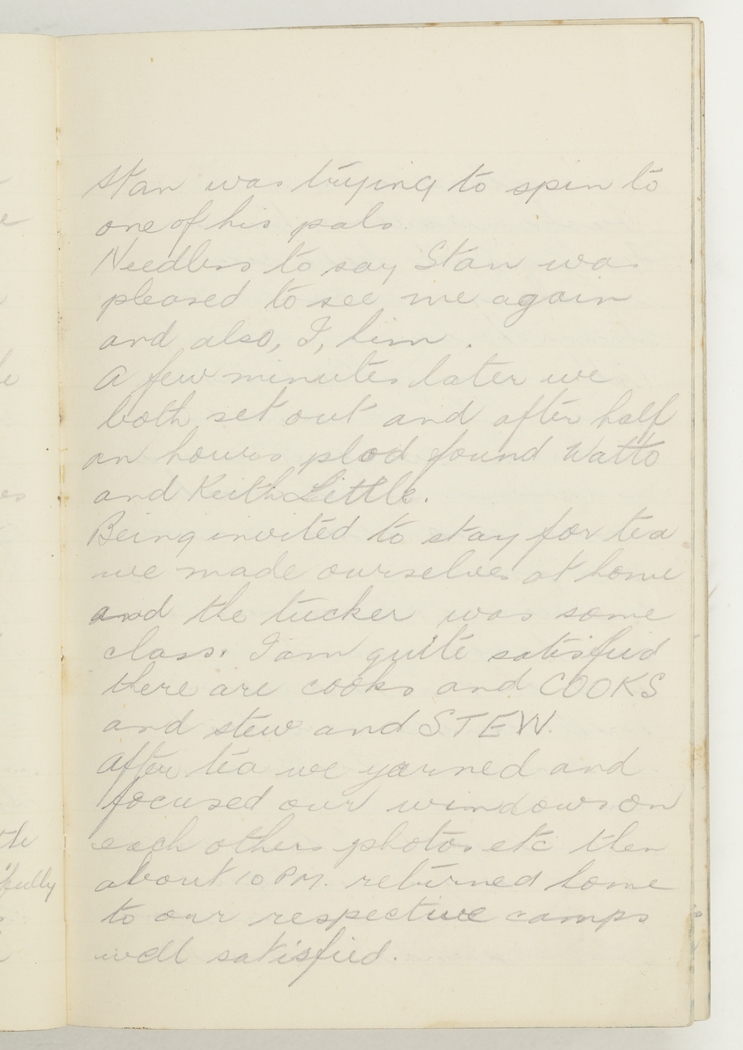 Stan was trying to spin to
one of his pals.
Needless to say Stan was
pleased to see me again
and also, I, him.
A few minutes later we
both set out and after half
an hours plod found Watto
and Keith Little.
Being invited to stay for tea
we made ourselves at home
and the tucker was some
class. I am quite satisfied
there are cooks and COOKS
and stew and STEW.
After tea we yarned and
focused our windows on
each others photos etc then
about 10 P.M. returned home
to our respective camps
well satisfied.